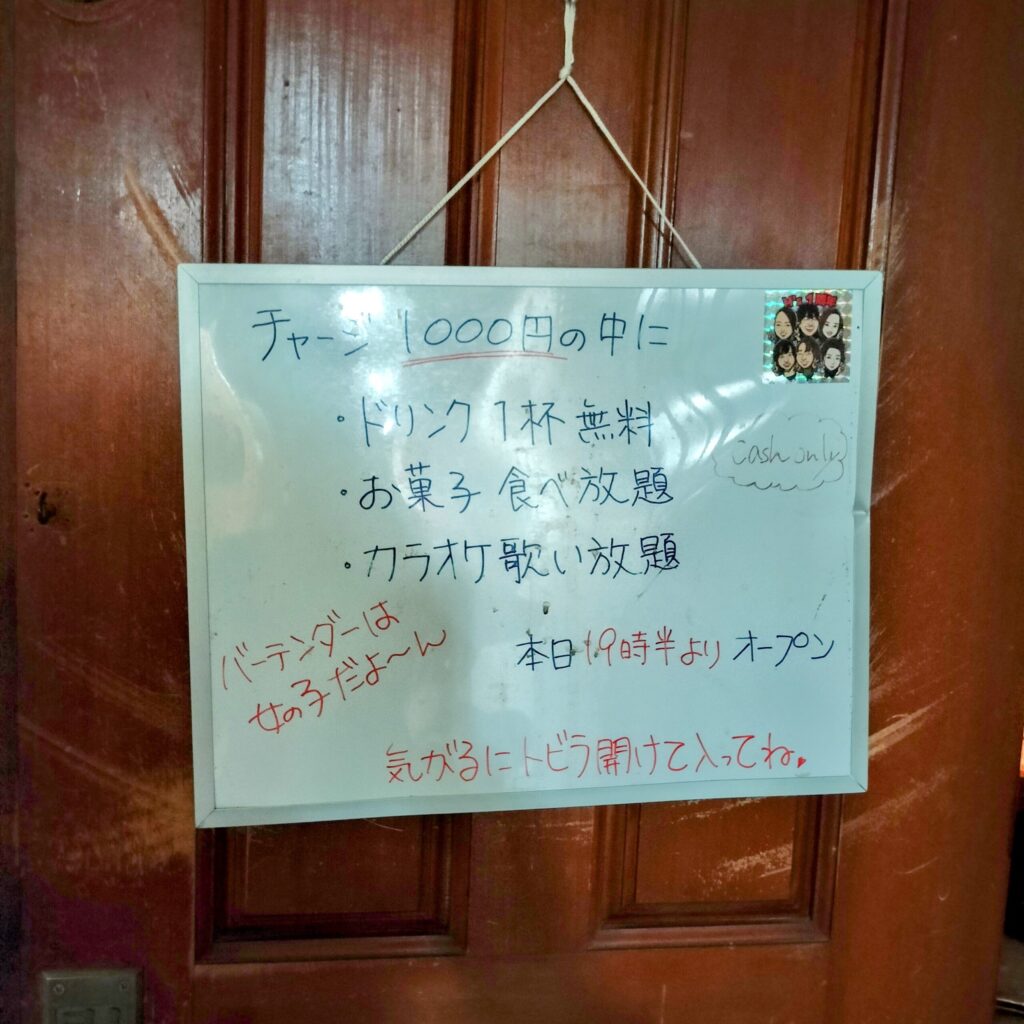 チャージ 1000円の中に
・ドリンク 1杯 無料
cash only
・お菓子 食べ放題
・カラオケ歌い放題
バーテンダーは
女の子だよ〜ん
本日19時半よりオープン
気がるにトビラ開けて入ってね